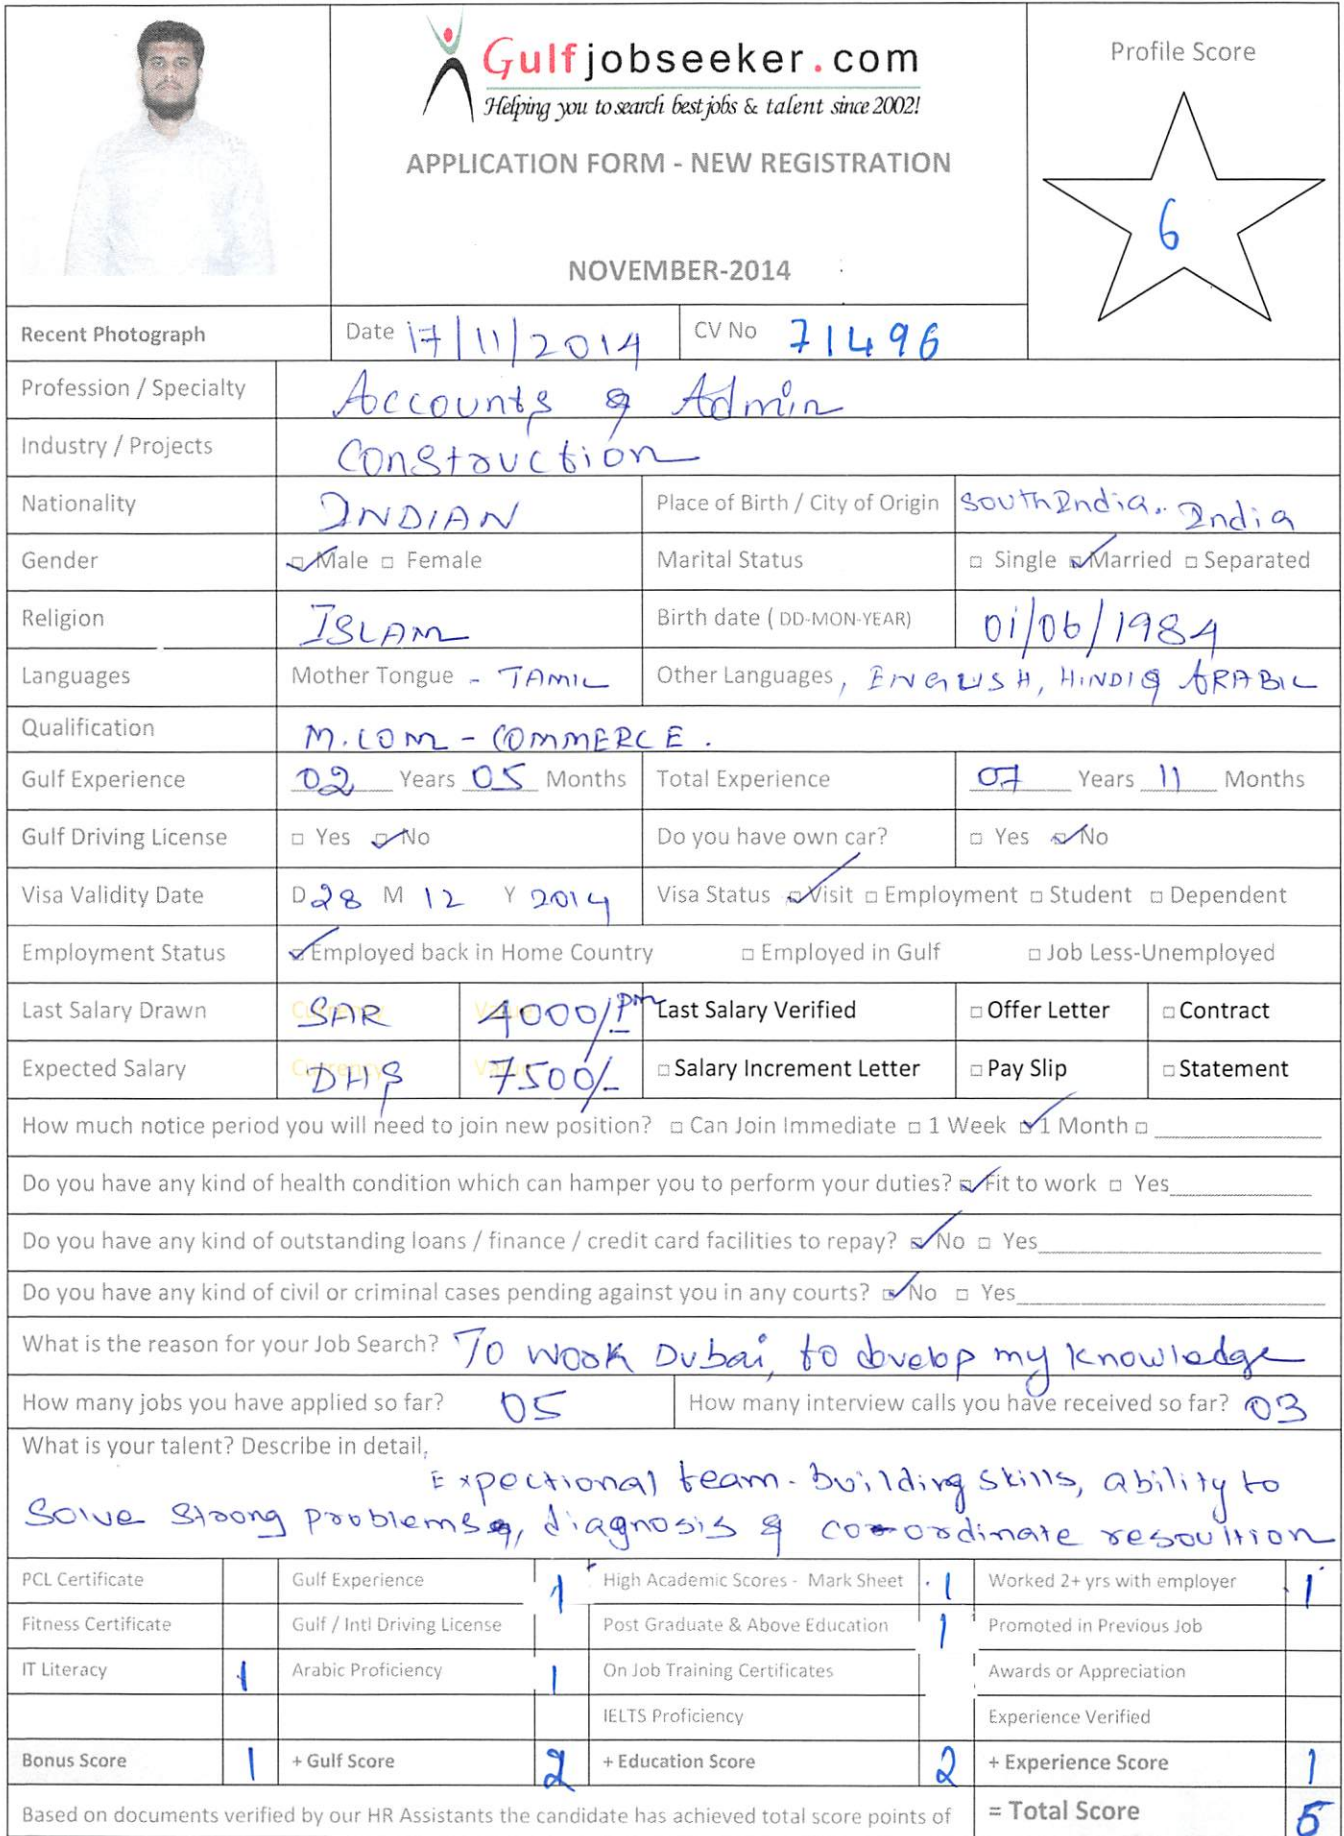 Gulfjobseeker.com
Helping you to search best jobs & talent since 2002!
APPLICATION FORM - NEW REGISTRATION
NOVEMBER-2014
Profile Score
6
Recent Photograph Date 17/11/2014 CV No 71496
Profession / Specialty Accounts & Admin
Industry / Projects Construction
Nationality INDIAN Place of Birth / City of Origin South India, India
Gender ☑ Male □ Female Marital Status □ Single ☑ Married □ Separated
Religion ISLAM Birth date ( DD-MON-YEAR) 01/06/1984
Languages Mother Tongue - TAMIL Other Languages, ENGLISH, HINDI & ARABIC
Qualification M.COM - COMMERCE.
Gulf Experience 02 Years 05 Months Total Experience 07 Years 11 Months
Gulf Driving License □ Yes ☑ No Do you have own car? □ Yes ☑ No
Visa Validity Date D 28 M 12 Y 2014 Visa Status ☑ Visit □ Employment □ Student □ Dependent
Employment Status ☑ Employed back in Home Country □ Employed in Gulf □ Job Less-Unemployed
Last Salary Drawn Currency SAR Value 4000/Pm Last Salary Verified □ Offer Letter □ Contract
Expected Salary Currency DHS Value 7500/- □ Salary Increment Letter □ Pay Slip □ Statement
How much notice period you will need to join new position? □ Can Join Immediate □ 1 Week ☑ 1 Month □
Do you have any kind of health condition which can hamper you to perform your duties? ☑ Fit to work □ Yes
Do you have any kind of outstanding loans / finance / credit card facilities to repay? ☑ No □ Yes
Do you have any kind of civil or criminal cases pending against you in any courts? ☑ No □ Yes
What is the reason for your Job Search? To work Dubai, to develop my knowledge
How many jobs you have applied so far? 05 How many interview calls you have received so far? 03
What is your talent? Describe in detail,
Expectional team-building skills, ability to
Solve strong problems, diagnosis & co-ordinate resoultion
PCL Certificate Gulf Experience 1 High Academic Scores - Mark Sheet 1 Worked 2+ yrs with employer 1
Fitness Certificate Gulf / Intl Driving License Post Graduate & Above Education 1 Promoted in Previous Job
IT Literacy 1 Arabic Proficiency 1 On Job Training Certificates Awards or Appreciation
IELTS Proficiency Experience Verified
Bonus Score 1 + Gulf Score 2 + Education Score 2 + Experience Score 1
Based on documents verified by our HR Assistants the candidate has achieved total score points of = Total Score